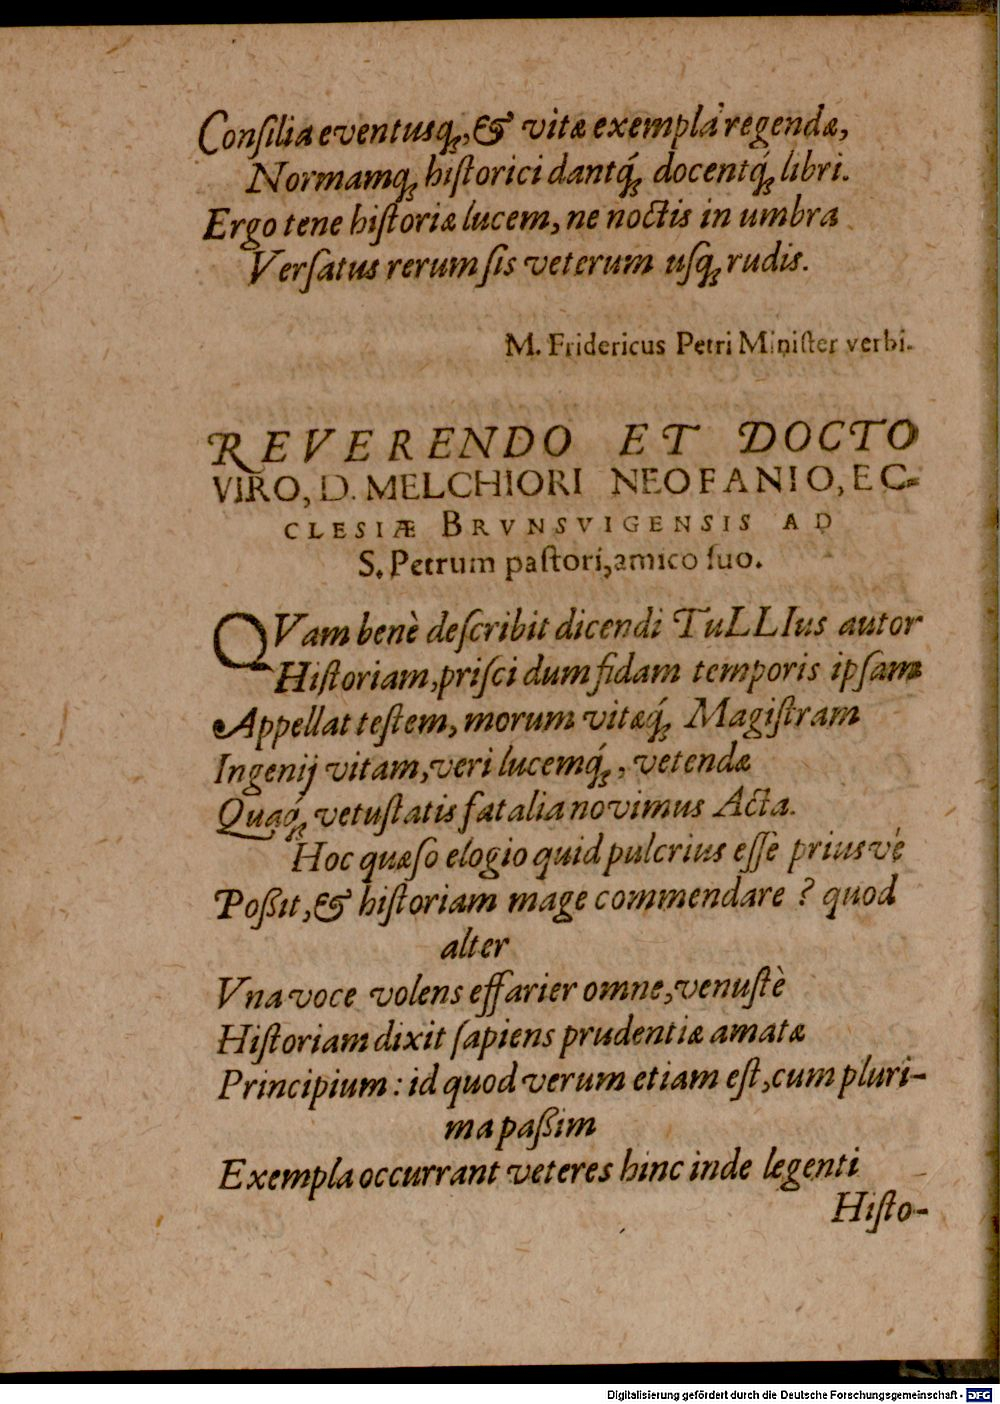 Conſilia eventusq́ꝫ, & vitæ exempla regendæ,
Normamqꝫ hiſtorici dantq́ꝫ docentq́ꝫ libri.
Ergo tene hiſtoriæ lucem, ne noctis in umbra
Verſatus rerum ſis veterum uſqꝫ rudis.
M. Fridericus Petri Miniſter verbi.
REVERENDO ET DOCTO
VIRO, D. MELCHIORI NEOFANIO, EC-
CLESIÆ BRVNSVIGENSIS AD
S. Petrum paſtori, amico ſuo.
QVam benè deſcribit dicendi TuLLIus autor
Hiſtoriam, priſci dum fidam temporis ipſam
Appellat teſtem, morum vitæq́ꝫ Magiſtram
Ingenij vitam, veri lucemq́ꝫ, vetendæ
Quaq́ꝫ vetuſtatis fatalia novimus Acta.
Hoc quæſo elogio quid pulcrius eſſe priusvé
Poßit, & hiſtoriam mage commendare ? quod
alter
Vna voce volens effarier omne, venuſtè
Hiſtoriam dixit ſapiens prudentiæ amatæ
Principium : id quod verum etiam eſt, cum pluri-
ma paßim
Exempla occurrant veteres hinc inde legenti
Hiſto-
Digitalisierung gefördert durch die Deutsche Forschungsgemeinschaft - DFG